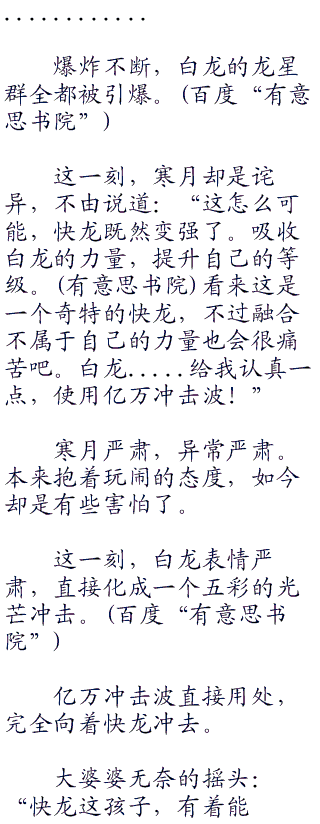 ............
爆炸不断，白龙的龙星
群全都被引爆。(百度“有意
思书院”)
这一刻，寒月却是诧
异，不由说道：“这怎么可
能，快龙既然变强了。吸收
白龙的力量，提升自己的等
级。(有意思书院)看来这是
一个奇特的快龙，不过融合
不属于自己的力量也会很痛
苦吧。白龙.....给我认真一
点，使用亿万冲击波！”
寒月严肃，异常严肃。
本来抱着玩闹的态度，如今
却是有些害怕了。
这一刻，白龙表情严
肃，直接化成一个五彩的光
芒冲击。(百度“有意思书
院”)
亿万冲击波直接用处，
完全向着快龙冲去。
大婆婆无奈的摇头：
“快龙这孩子，有着能